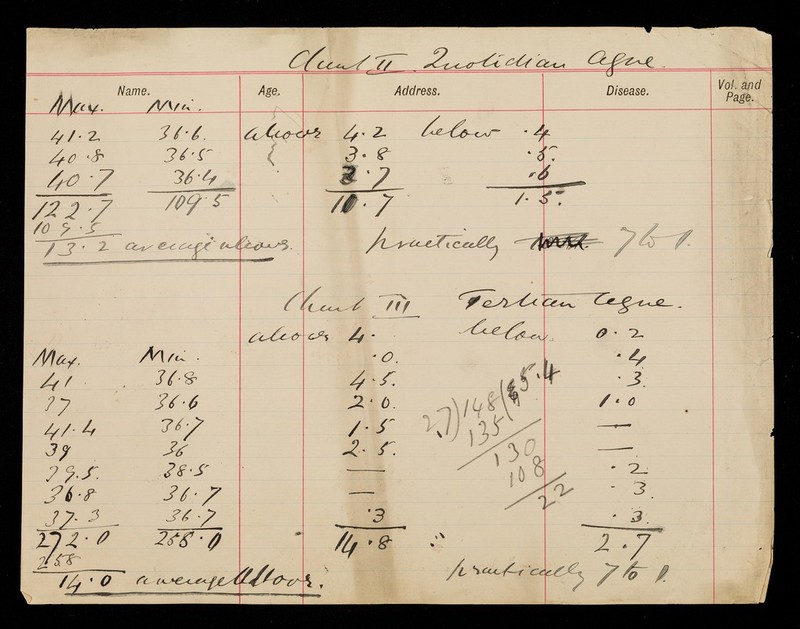 Chart II. Quotidian Ague.
Name. Age. Address. Disease. Vol. and Page.
Max. Min.
41.2 36.6. above 4.2 below .4
40.8 36.5 3.8 .5.
40.7 36.4 2.7 .6
122.7 109.5 10.7 1.5.
109.5
13.2 average above. practically 7 to 1.
Chart III Tertian Ague.
above 4. below 0.2
Max. Min. .0. .4
41 36.8 4.5. .3
37 36.6 2.0. 1.0
41.4 36.7 1.5 —
39 36 2.5. —
39.5. 38.5 — .2
36.8 36.7 — .3
37.3 36.7 .3 .3
272.0 258.0 14.8 2.7
258
14.0 average above. practically 7 to 1.
27)148(5.4
135
130
108
22